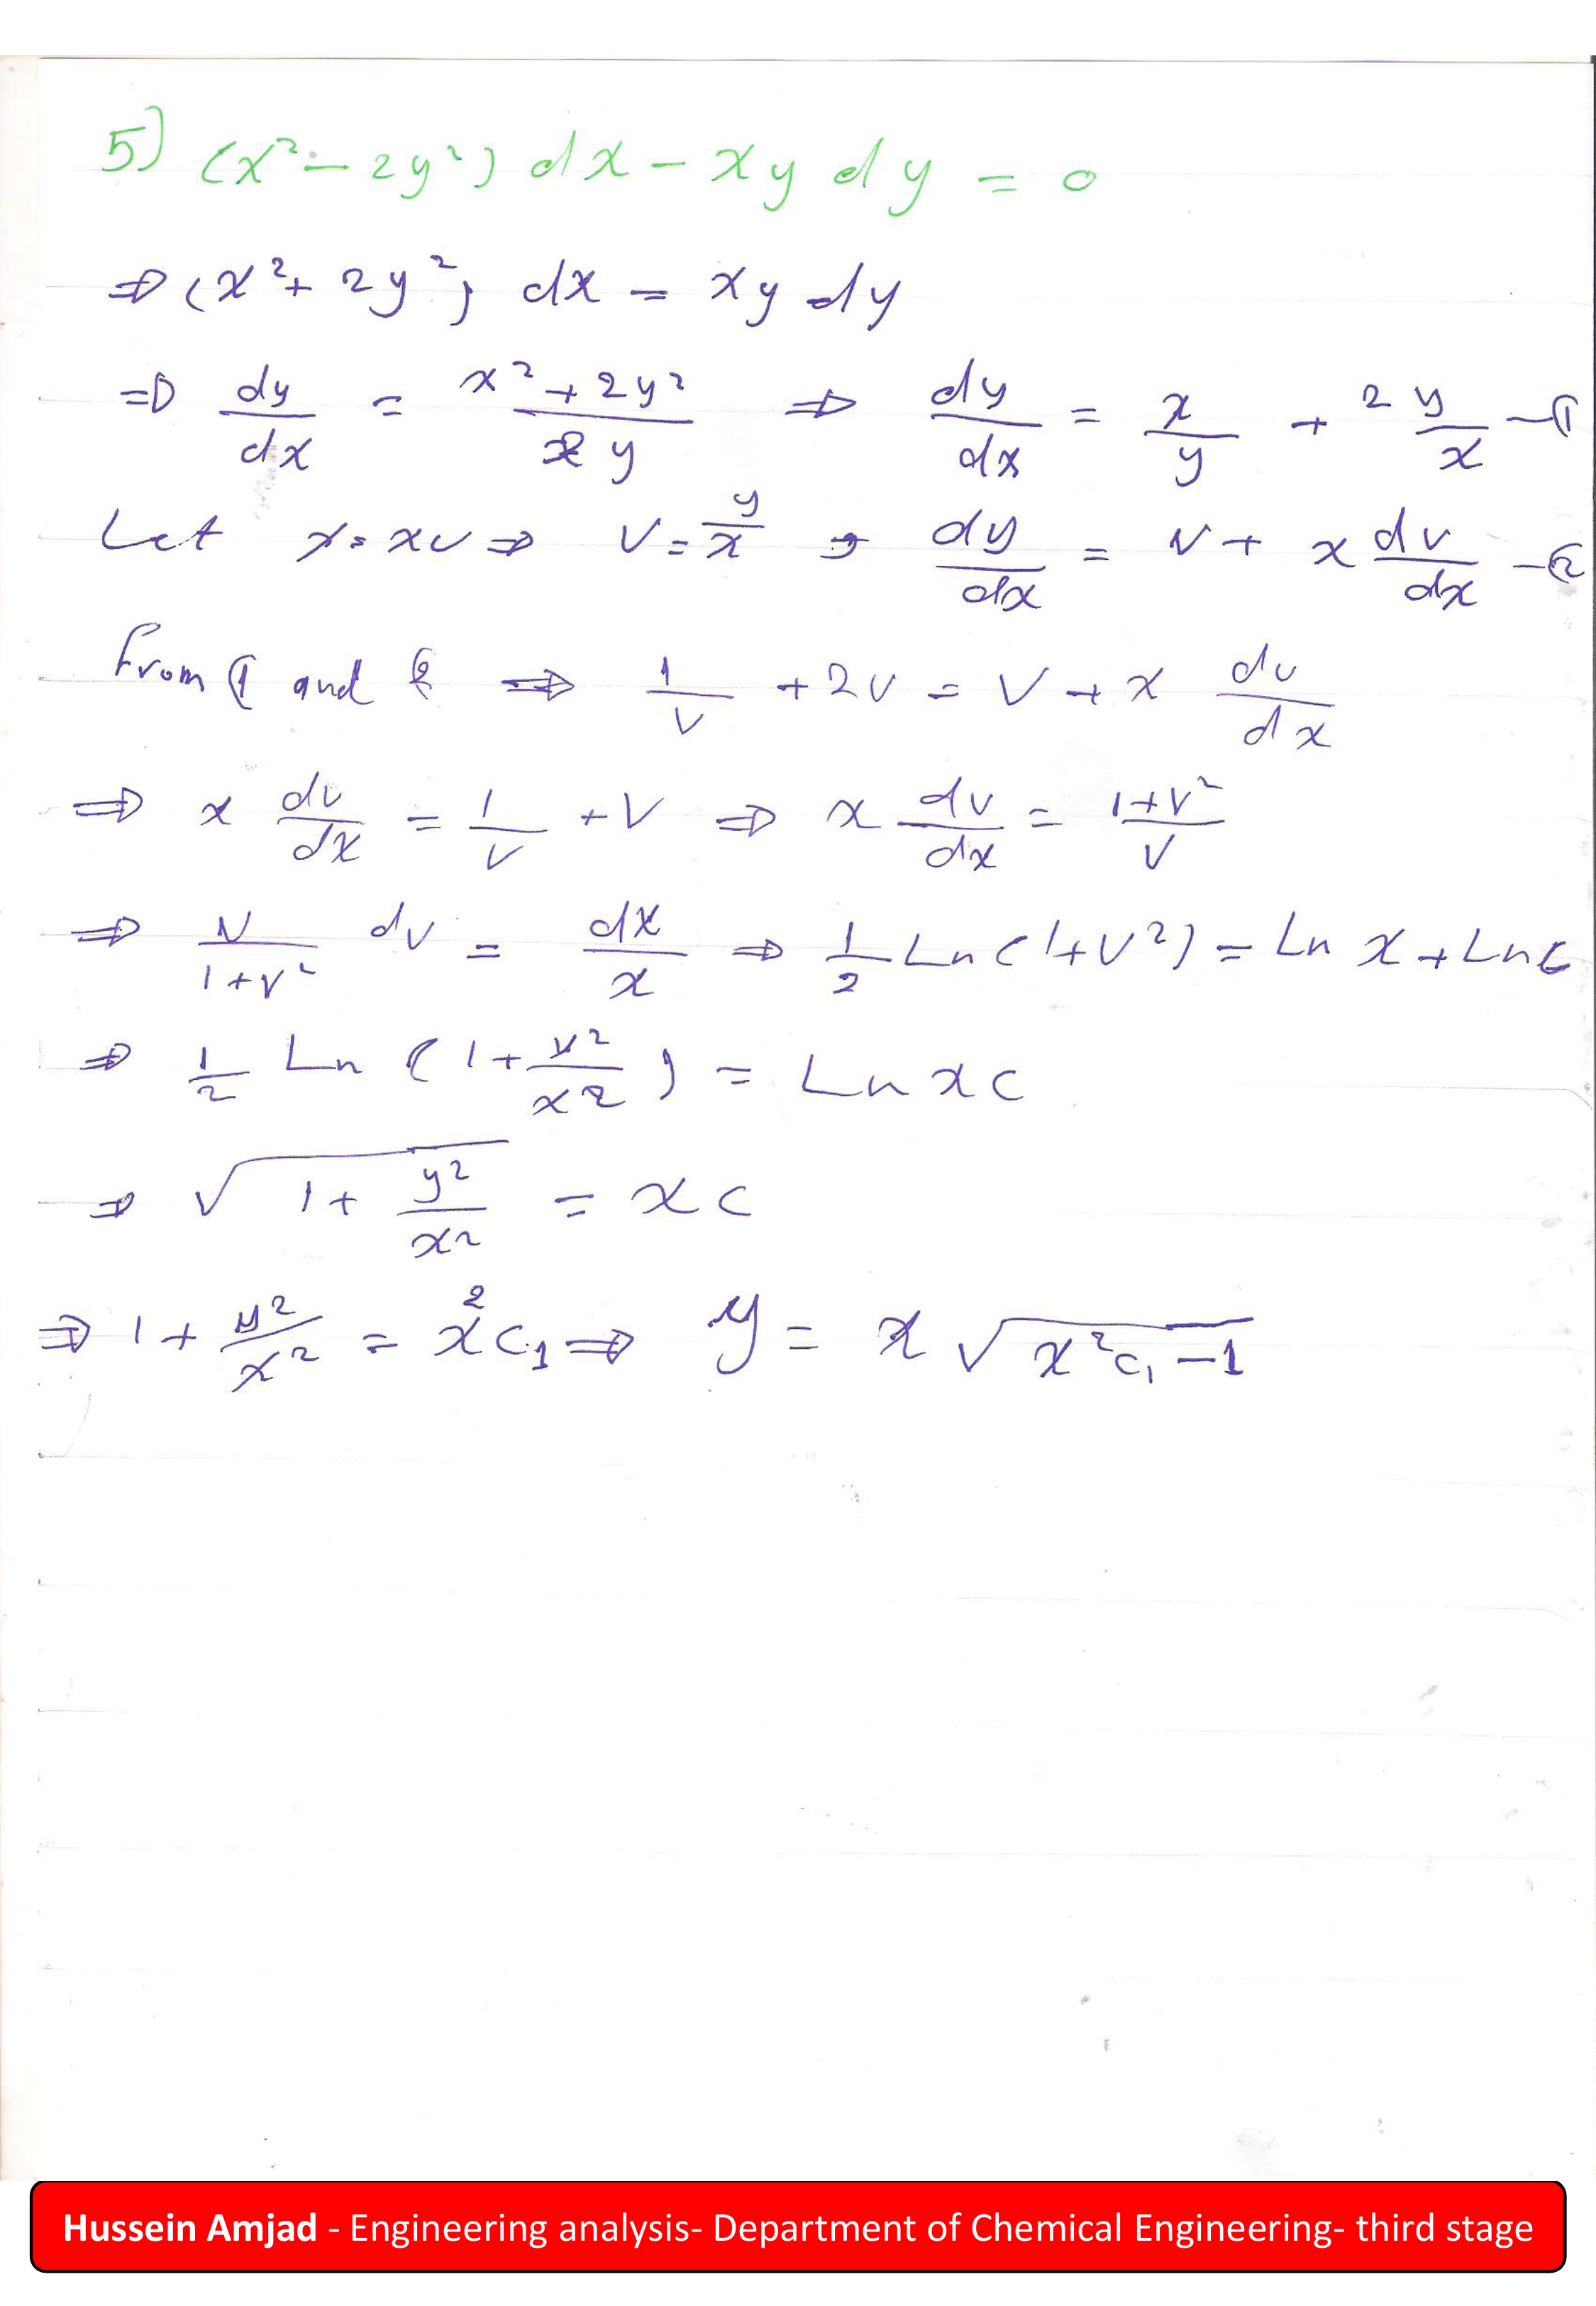 5) (x² - 2y²) dx - xy dy = 0
⇒ (x² + 2y²) dx = xy dy
⇒ dy/dx = x² + 2y² / xy ⇒ dy/dx = x/y + 2 y/x — ①
Let y = xv ⇒ v = y/x ⇒ dy/dx = v + x dv/dx — ②
From ① and ② ⇒ 1/v + 2v = v + x dv/dx
⇒ x dv/dx = 1/v + v ⇒ x dv/dx = 1+v²/v
⇒ v/1+v² dv = dx/x ⇒ 1/2 Ln (1+v²) = Ln x + Ln c
⇒ 1/2 Ln (1 + y²/x²) = Ln xc
⇒ √(1 + y²/x²) = xc
⇒ 1 + y²/x² = x²c₁ ⇒ y = x √(x²c₁ - 1)
Hussein Amjad - Engineering analysis- Department of Chemical Engineering- third stage